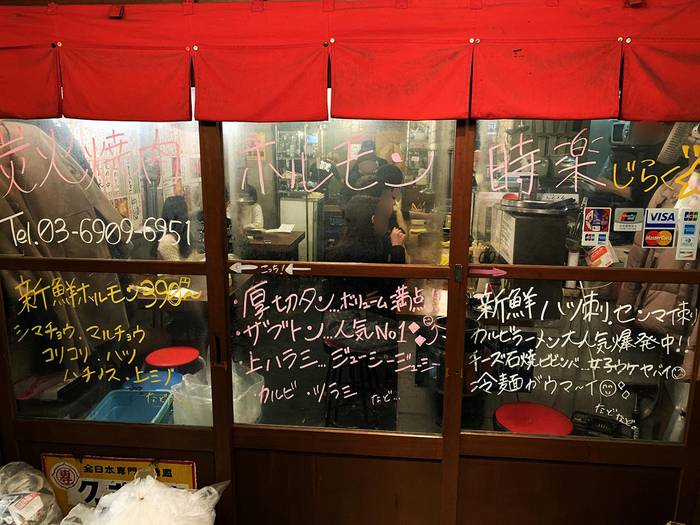 炭火焼肉 ホルモン 時楽 じらく
Tel.03-6909-6951
新鮮ホルモン390円〜
シマチョウ・マルチョウ
コリコリ・ハツ
ハチノス・上ミノ
など…
こっち!
・厚切タン…ボリューム満点
・ザブトン…人気No1
・上ハラミ…ジューシージューシー
カルビ・ツラミ
など…
新鮮ハツ刺し.センマイ刺し
カルビラーメン大人気爆発中!!
チーズ石焼ビビンバ…女子ウケヤバイ
冷麺がウマ〜イ
などなど。
VISA
MasterCard
全日本専門